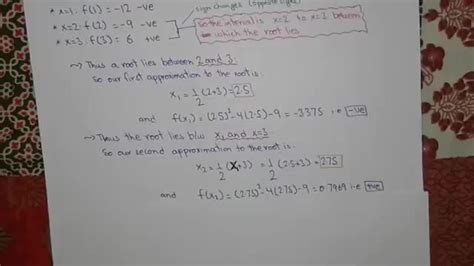 * x=1 : f(1) = -12 -ve
sign changes (opposite signs)
* x=2 : f(2) = -9 -ve
* x=3 : f(3) = 6 +ve
So the interval is x=2 to x=3 between
which the root lies
→ Thus a root lies between 2 and 3.
So our first approximation to the root is:
x₁ = 1/2 (2+3) = 2.5
and f(x₁) = (2.5)³-4(2.5)-9 = -3.375 i.e -ve
→ Thus the root lies b/w x₁ and x=3
So our second approximation to the root is:
x₂ = 1/2 (x₁+3) = 1/2 (2.5+3) = 2.75
and f(x₂) = (2.75)³-4(2.75)-9 = 0.7969 i.e +ve